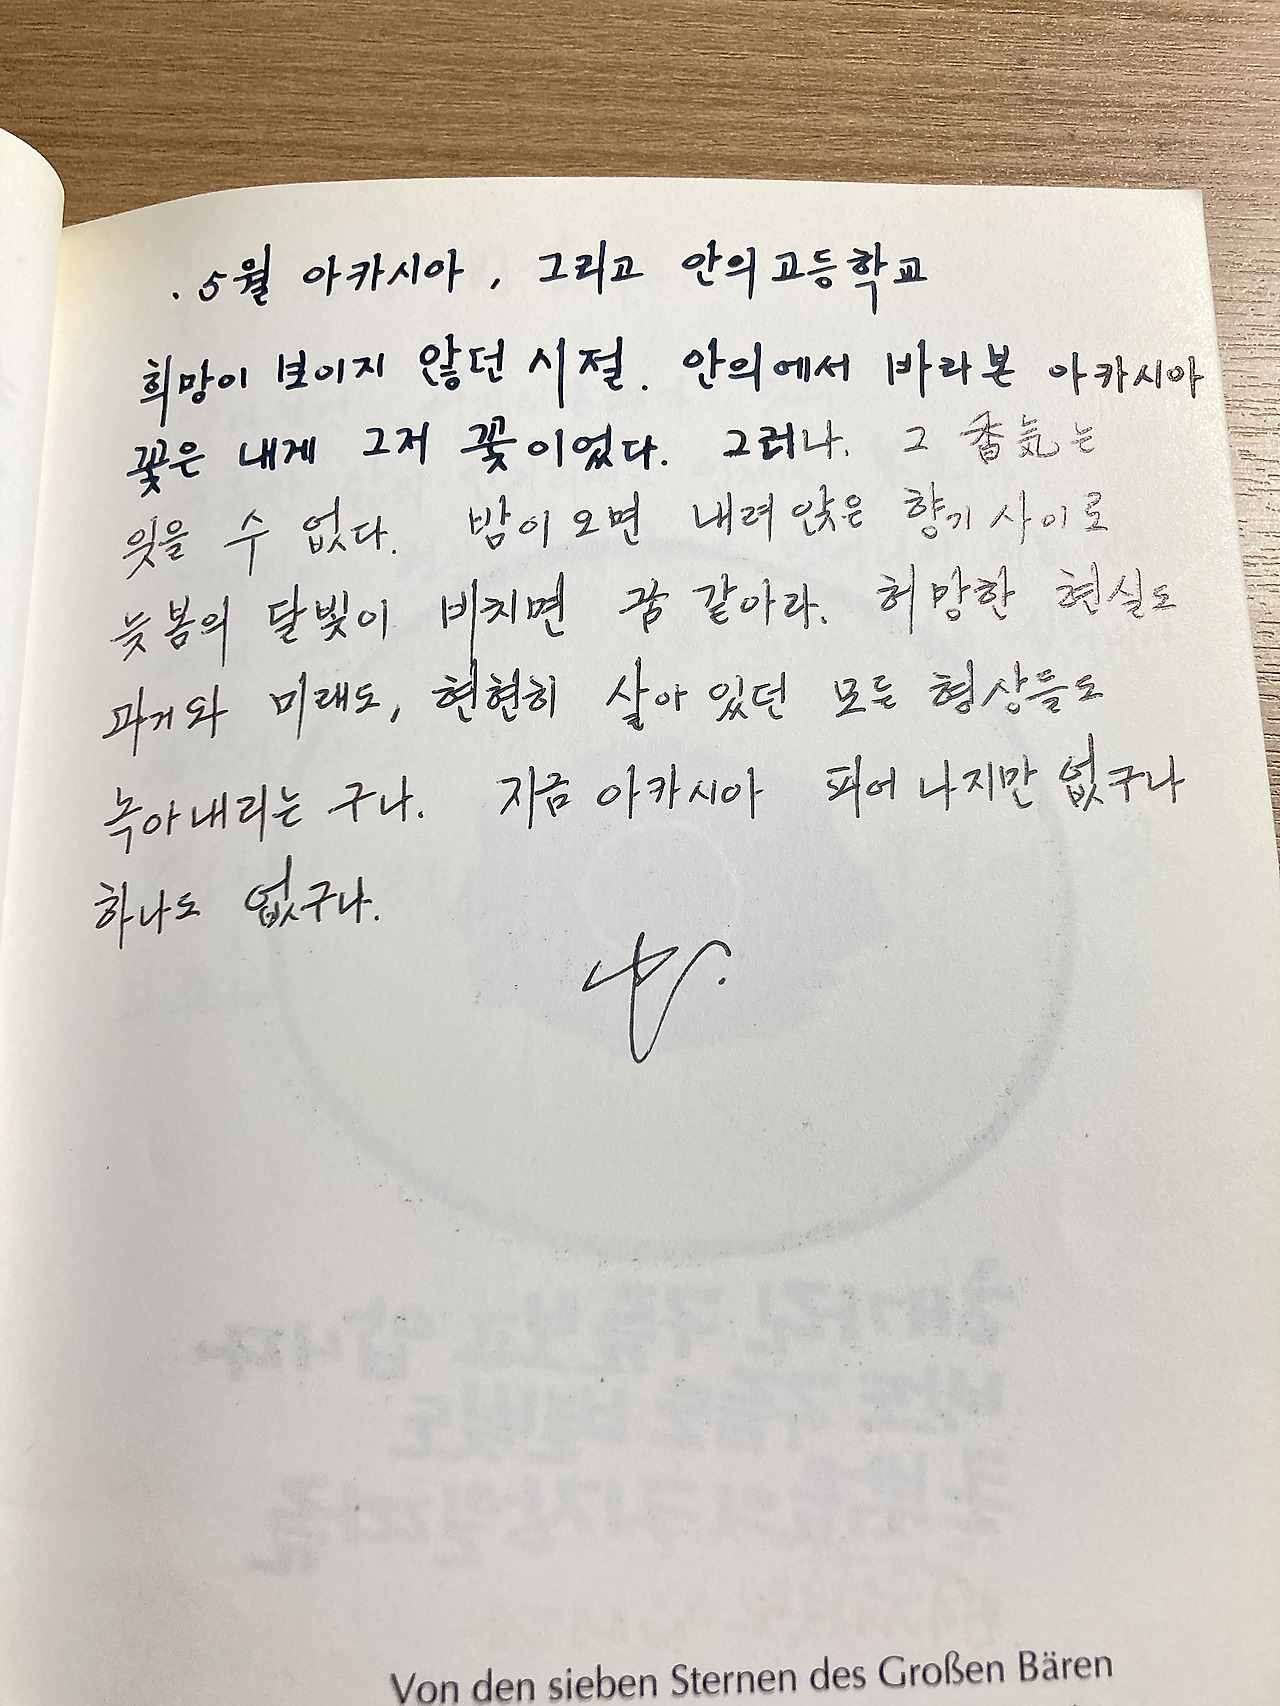 . 5월 아카시아, 그리고 안의고등학교
희망이 보이지 않던 시절. 안의에서 바라본 아카시아
꽃은 내게 그저 꽃이었다. 그러나. 그 香気는
잊을 수 없다. 밤이 오면 내려 앉은 향기 사이로
늦봄의 달빛이 비치면 꿈 같아라. 허망한 현실도
과거와 미래도, 현현히 살아 있던 모든 형상들도
녹아내리는 구나. 지금 아카시아 피어 나지만 없구나
하나도 없구나.
Von den sieben Sternen des Großen Bären